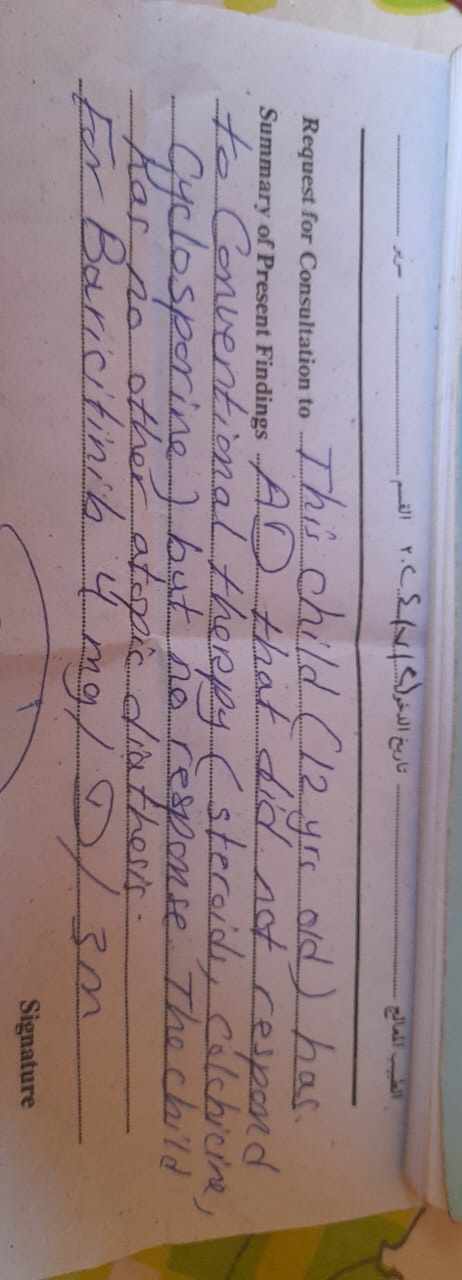 تاريخ الدخول ٢٠٢٤/٧/٩ القسم
الطبيب المعالج
Request for Consultation to This child (12 yrs old) has
Summary of Present Findings AD that did not respond
to Conventional therapy (steroids, Colchicine,
Cyclosporine) but no response. The child
has no other atopic diathesis.
For Baricitinib 4 mg / D / 3m
Signature